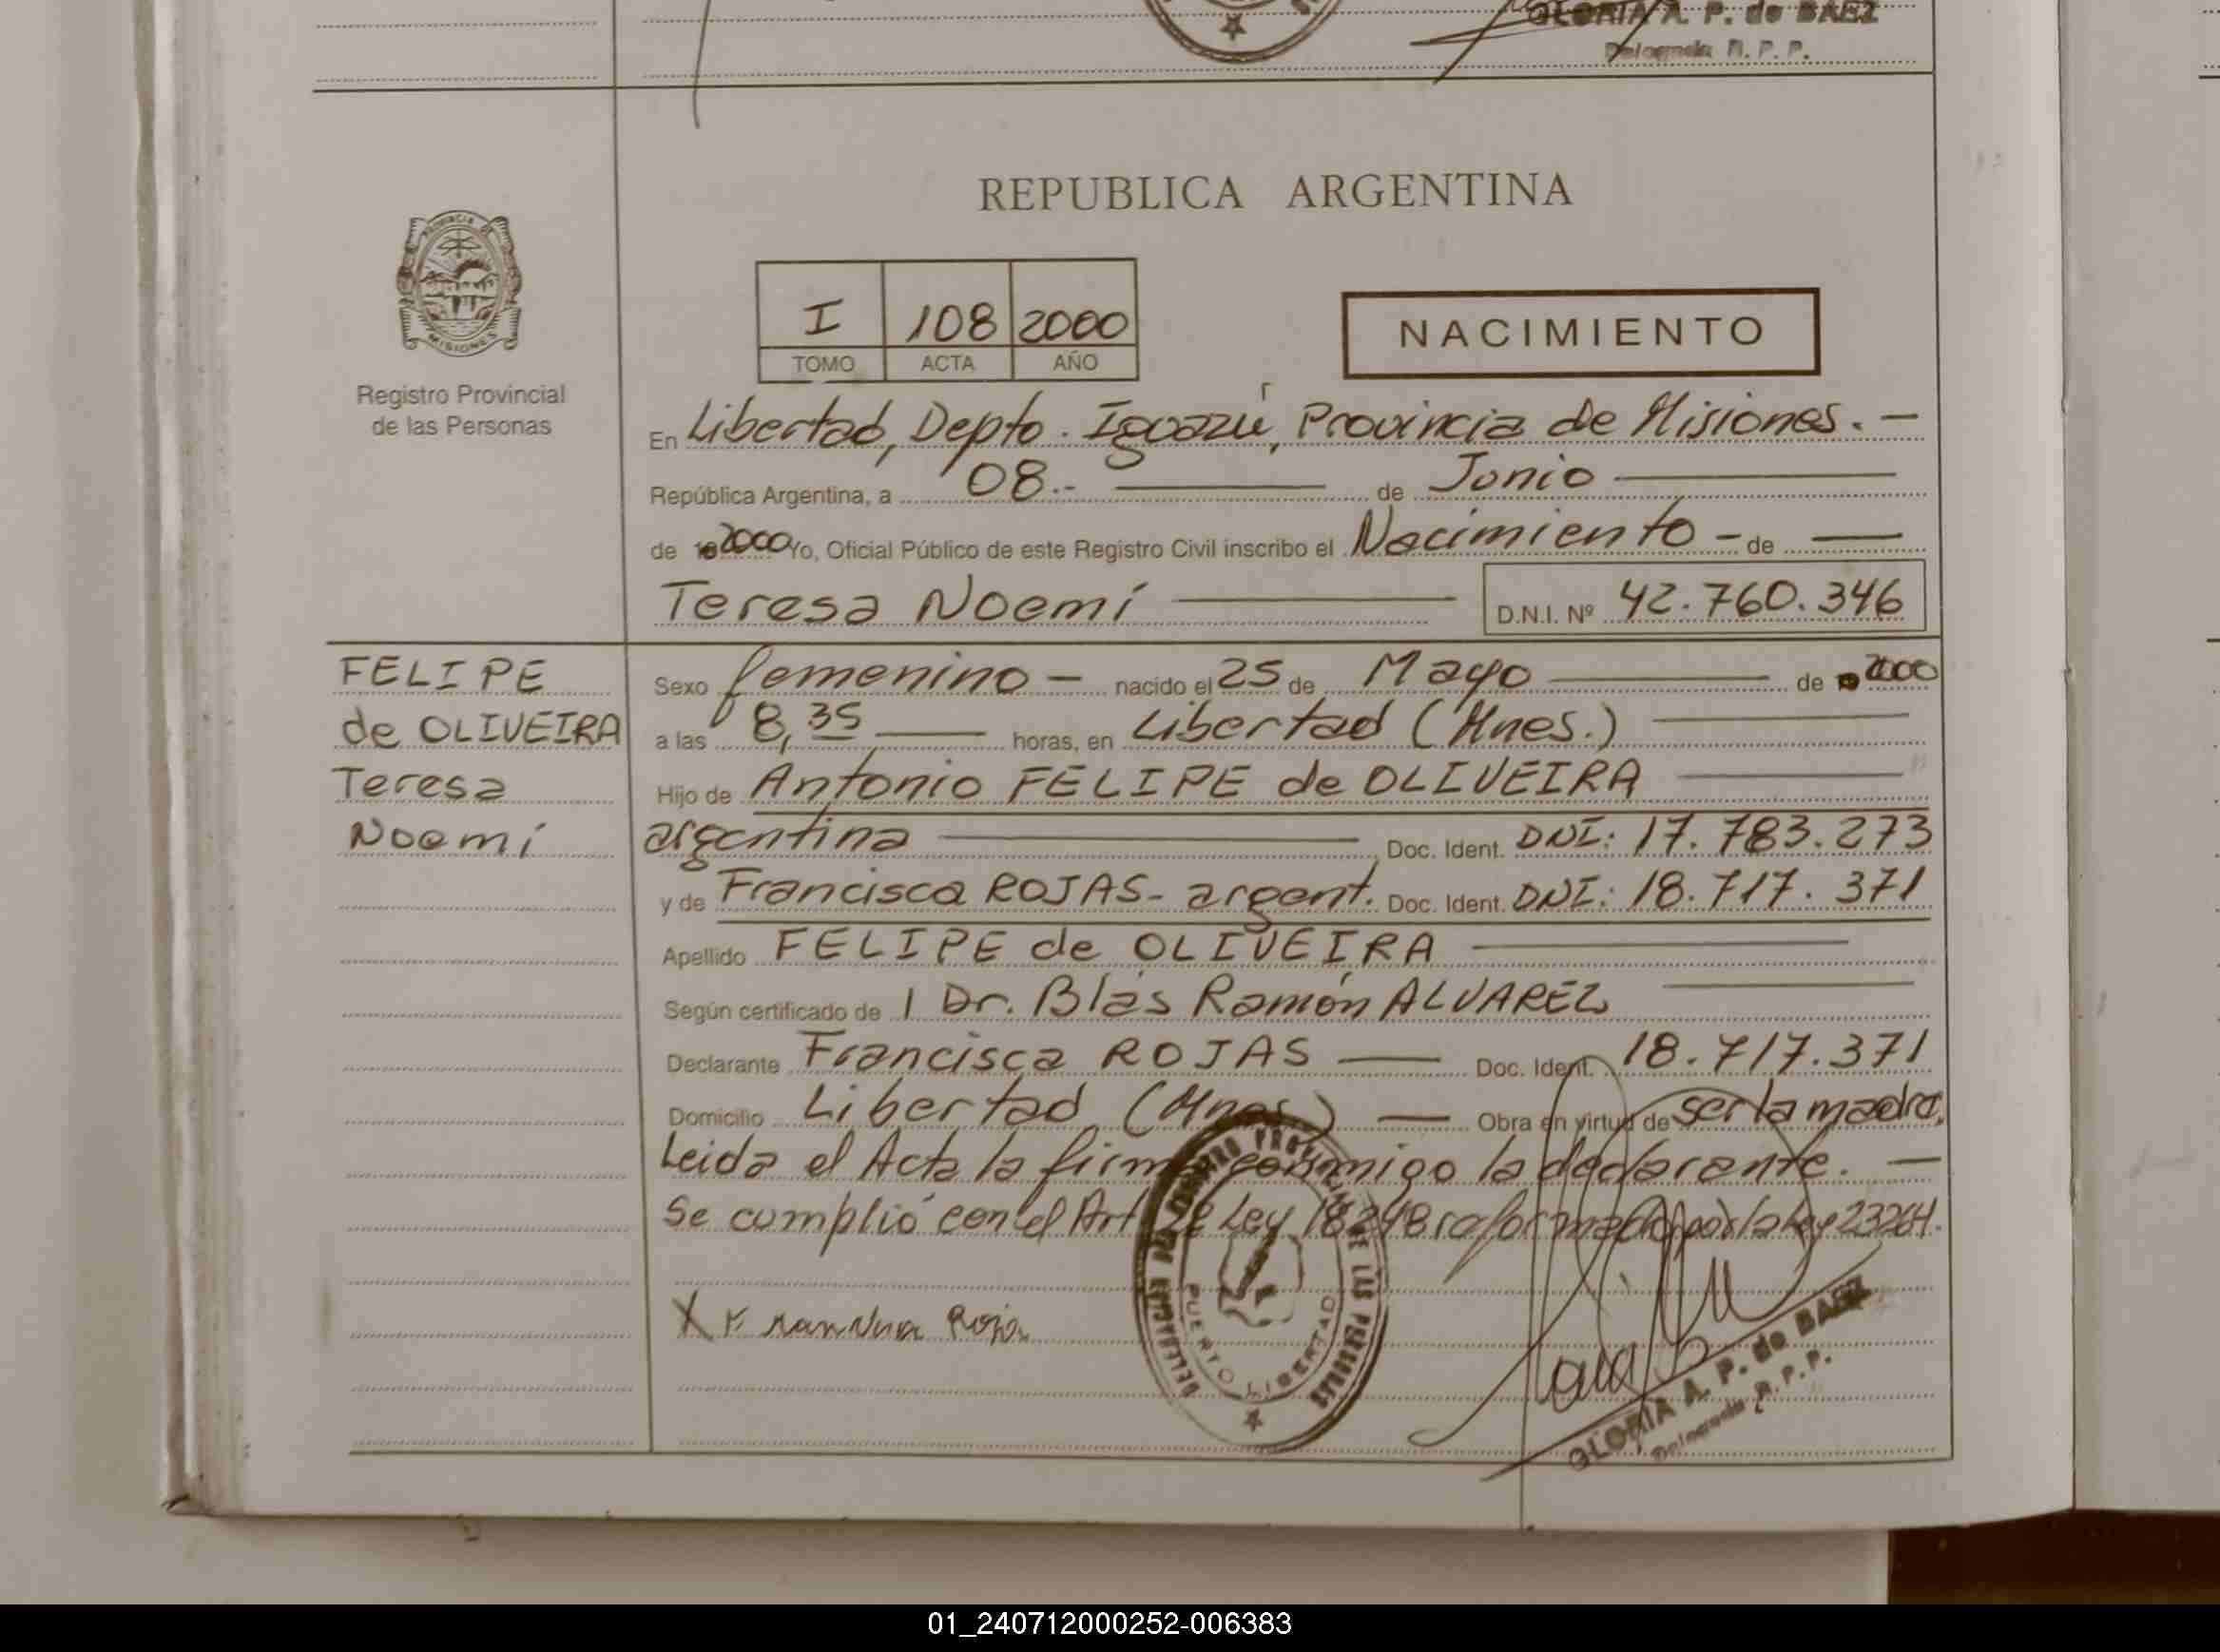 GLORIA A. P. de BAEZ
Delegada R. P. P.
REPUBLICA ARGENTINA
PROVINCIA DE
MISIONES
Registro Provincial
de las Personas
I 108 2000
TOMO ACTA AÑO
NACIMIENTO
En Libertad, Depto. Iguazú, Provincia de Misiones. —
República Argentina, a 08.- — de Junio —
de 2000 Yo, Oficial Público de este Registro Civil inscribo el Nacimiento - de —
Teresa Noemí — D.N.I. Nº 42.760.346
FELIPE
de OLIVEIRA
Teresa
Noemí
Sexo femenino — nacido el 25 de Mayo — de 2000
a las 8,35 — horas, en Libertad (Mnes.) —
Hijo de Antonio FELIPE de OLIVEIRA —
argentina — Doc. Ident. DNI: 17.783.273
y de Francisca ROJAS - argent. Doc. Ident. DNI: 18.717.371
Apellido FELIPE de OLIVEIRA —
Según certificado de 1 Dr. Blás Ramón ALVAREZ —
Declarante Francisca ROJAS — Doc. Ident. 18.717.371
Domicilio Libertad (Mnes) — Obra en virtud de ser la madre.
Leida el Acta la firma conmigo la declarante. —
Se cumplió con el Art 2º Ley 18248 reformado por la Ley 23264.
X
REGISTRO PROVINCIAL DE LAS PERSONAS
PUERTO LIBERTAD
GLORIA A. P. de BAEZ
Delegada R. P. P.
01_240712000252-006383